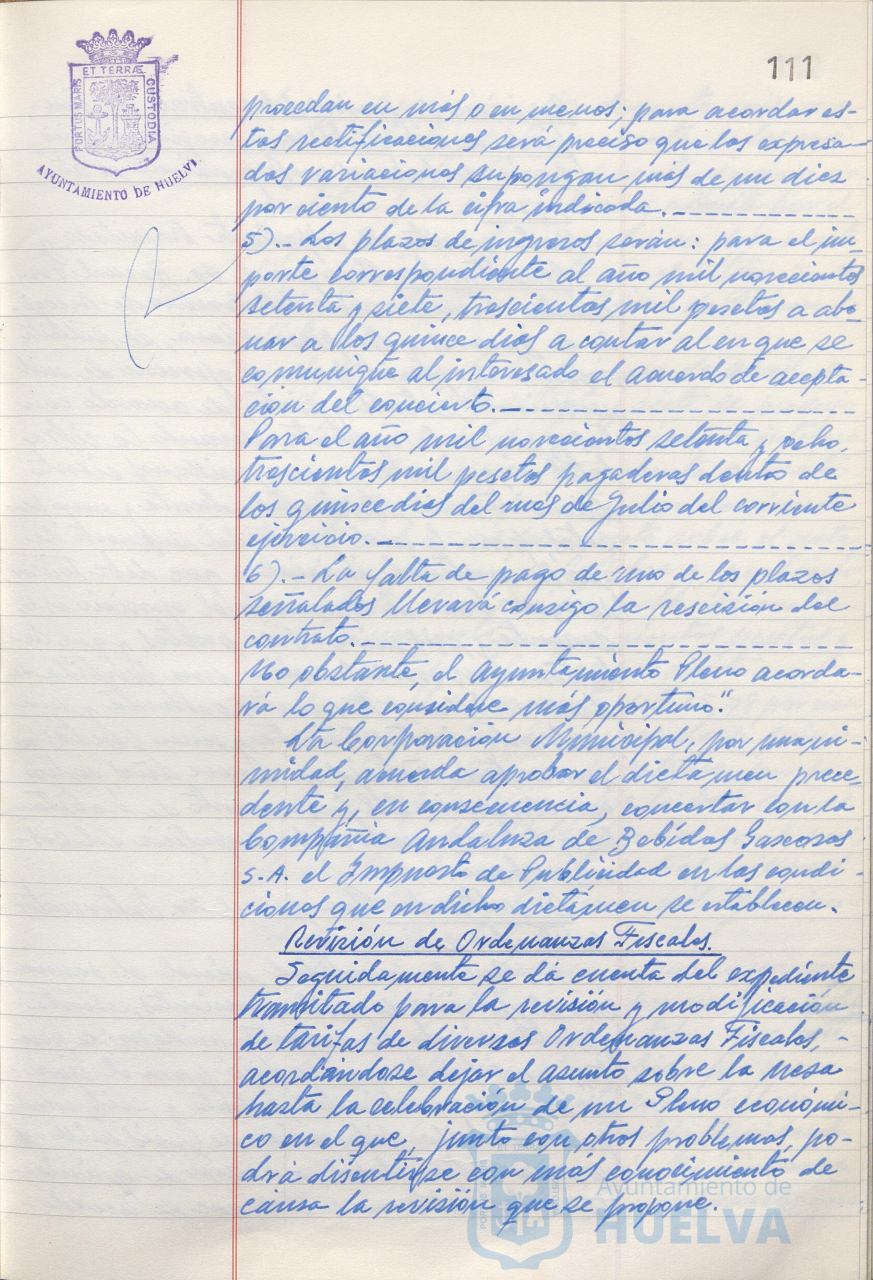 111
ET TERRÆ
PORTUS MARIS
CUSTODIA
AYUNTAMIENTO DE HUELVA
procedan en más o en menos; para acordar es-
tas rectificaciones será preciso que las expresa-
das variaciones supongan más de un diez
por ciento de la cifra indicada.
5).- Los plazos de ingresos serán: para el im-
porte correspondiente al año mil novecientos
setenta y siete, trescientas mil pesetas a abo-
nar a los quince días a contar al en que se
comunique al interesado el acuerdo de acepta-
ción del concierto.
Para el año mil novecientos setenta y ocho,
trescientas mil pesetas pagaderas dentro de
los quince dias del mes de Julio del corriente
ejercicio.
6).- La falta de pago de uno de los plazos
señalados llevará consigo la rescisión del
contrato.
No obstante, el Ayuntamiento Pleno acorda-
rá lo que considere más oportuno".
La Corporación Municipal, por unani-
midad, acuerda aprobar el dictamen prece-
dente y, en consecuencia, concertar con la
Compañia Andaluza de Bebidas Gaseosas
S.A. el Impuesto de Publicidad en las condi-
ciones que en dicho dictámen se establecen.
Revisión de Ordenanzas Fiscales.
Seguidamente se dá cuenta del expediente
tramitado para la revisión y modificación
de tarifas de diversas Ordenanzas Fiscales,-
acordándose dejar el asunto sobre la Mesa
hasta la celebración de un Pleno económi-
co en el que, junto con otros problemas, po-
drá discutirse con más conocimiento de
causa la revisión que se propone.
Ayuntamiento de
HUELVA